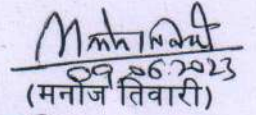 09.06.2023
(मनोज तिवारी)